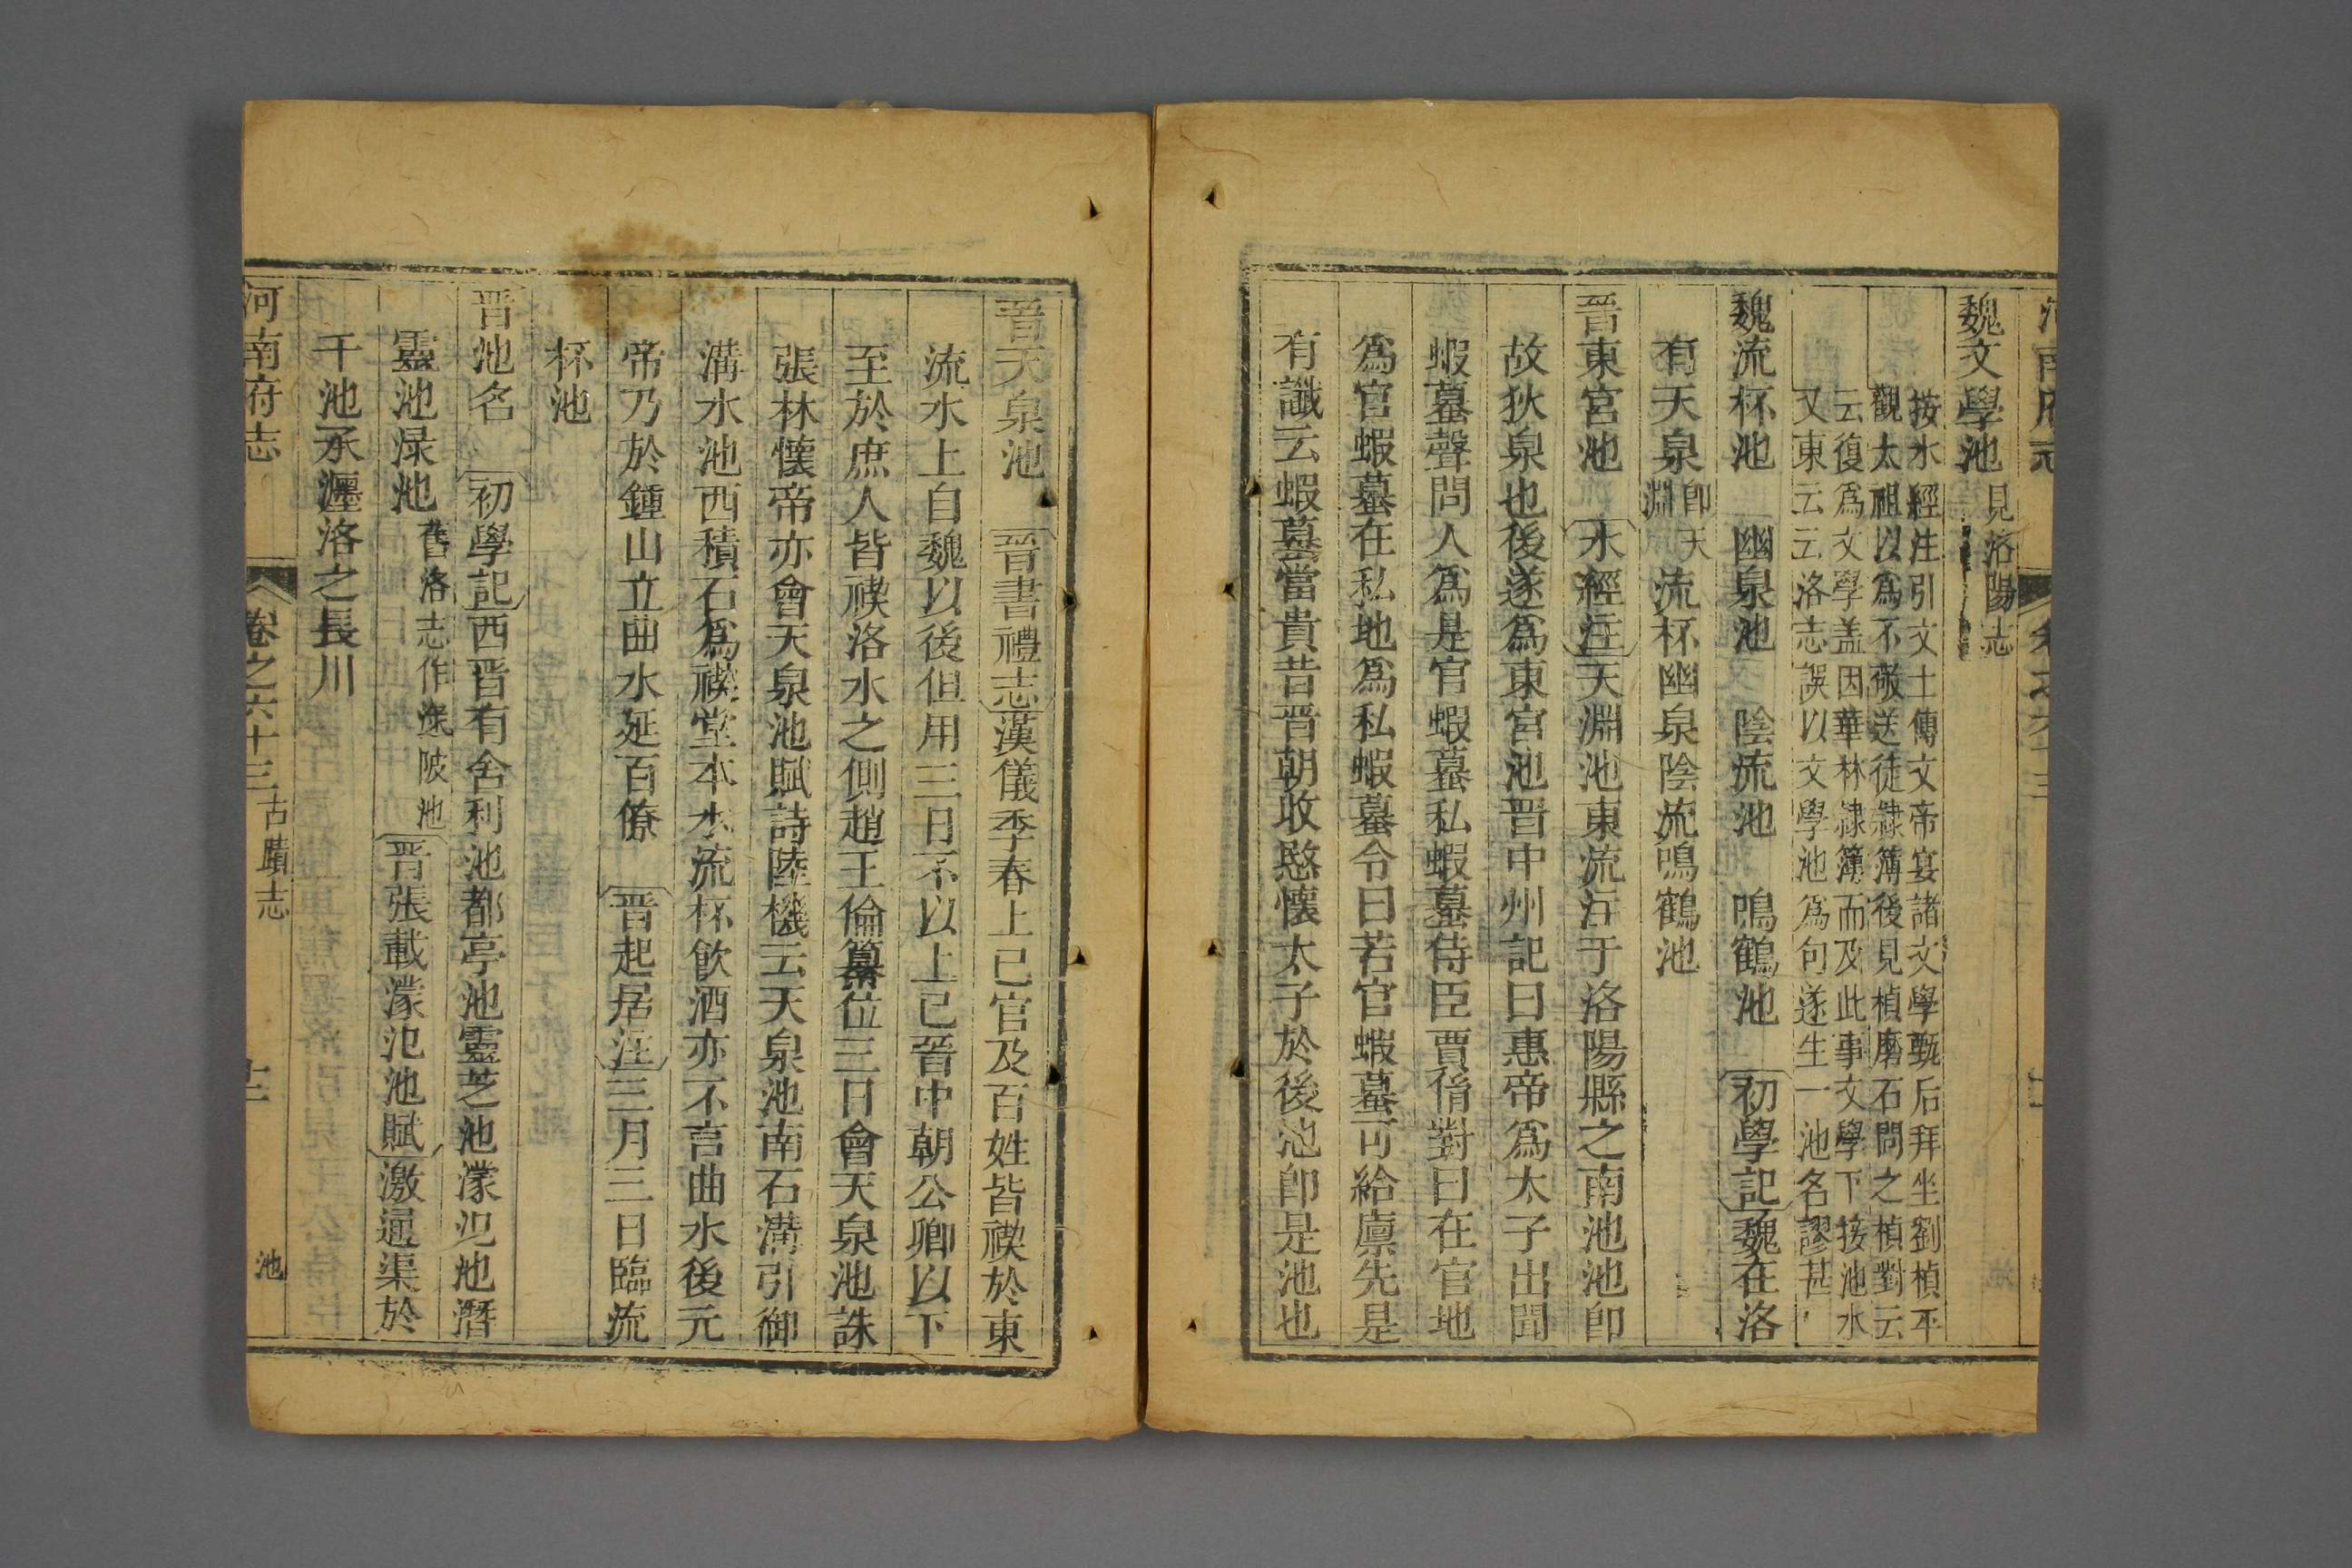 河南府志 卷之六十三
魏文學池 見洛陽志
按水經注引文士傳文帝宴諸文學甄后拜坐劉楨平
觀太祖以為不敬送徒隷簿後見楨磨石問之楨對云
云復為文學盖因華林隷簿而及此事文學下接池水
又東云云洛志誤以文學池為句遂生一池名謬甚
魏流杯池 幽泉池 陰流池 鳴鶴池 初學記魏在洛
有天泉 卽天淵 流杯幽泉陰流鳴鶴池
晋東宮池 水經注天淵池東流注于洛陽縣之南池池卽
故狄泉也後遂爲東宮池晋中州記曰惠帝爲太子出聞
蝦蟇聲問人爲是官蝦蟇私蝦蟇侍臣賈胤對曰在官地
爲官蝦蟇在私地爲私蝦蟇令曰若官蝦蟇可給廪先是
有讖云蝦蟇當貴昔晋朝收愍懷太子於後池卽是池也
晋天泉池 晋書禮志漢儀季春上巳官及百姓皆禊於東
流水上自魏以後但用三日不以上巳晋中朝公卿以下
至於庶人皆禊洛水之側趙王倫簒位三日會天泉池誅
張林懷帝亦會天泉池賦詩陸機云天泉池南石溝引御
溝水池西積石爲禊堂本水流杯飲酒亦不言曲水後元
帝乃於鍾山立曲水延百僚 晋起居注三月三日臨流
杯池
晋池名 初學記西晋有舍利池都亭池靈芝池濛汜池潛
靈池渌池 舊洛志作逯陂池 晋張載濛汜池賦激通渠於
千池承瀍洛之長川
河南府志 卷之六十三 古蹟志 池 十二